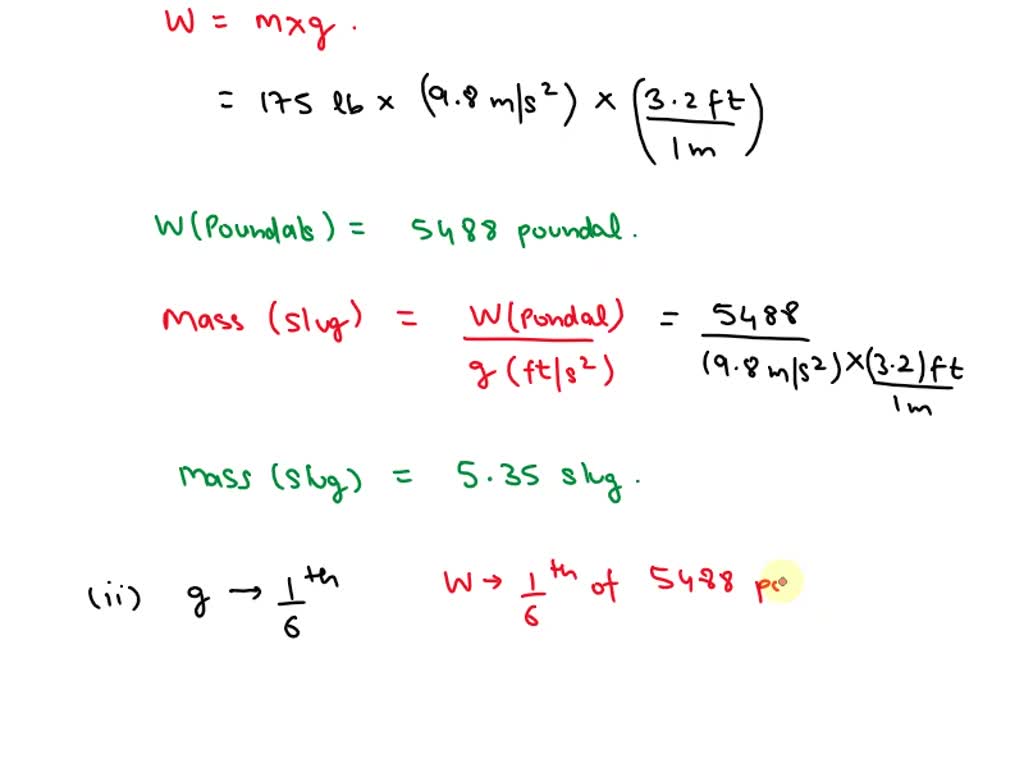 W = mxg.
= 175 lb × (9.8 m/s²) × (3.2 ft / 1 m)
W (Poundals) = 5488 poundal.
Mass (Slug) = W (Pondal) / g (ft/s²) = 5488 / (9.8 m/s²) × (3.2) ft / 1m
Mass (Slug) = 5.35 slug.
(ii) g → 1/6 th W → 1/6 th of 5488 po